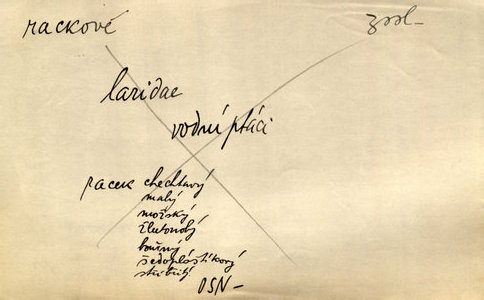 rackové
zool–
laridae
vodní ptáci
racek chechtavý
malý
mořský
žlutonohý
bouřný
šedoplášťikový
stříbřitý
OSN –